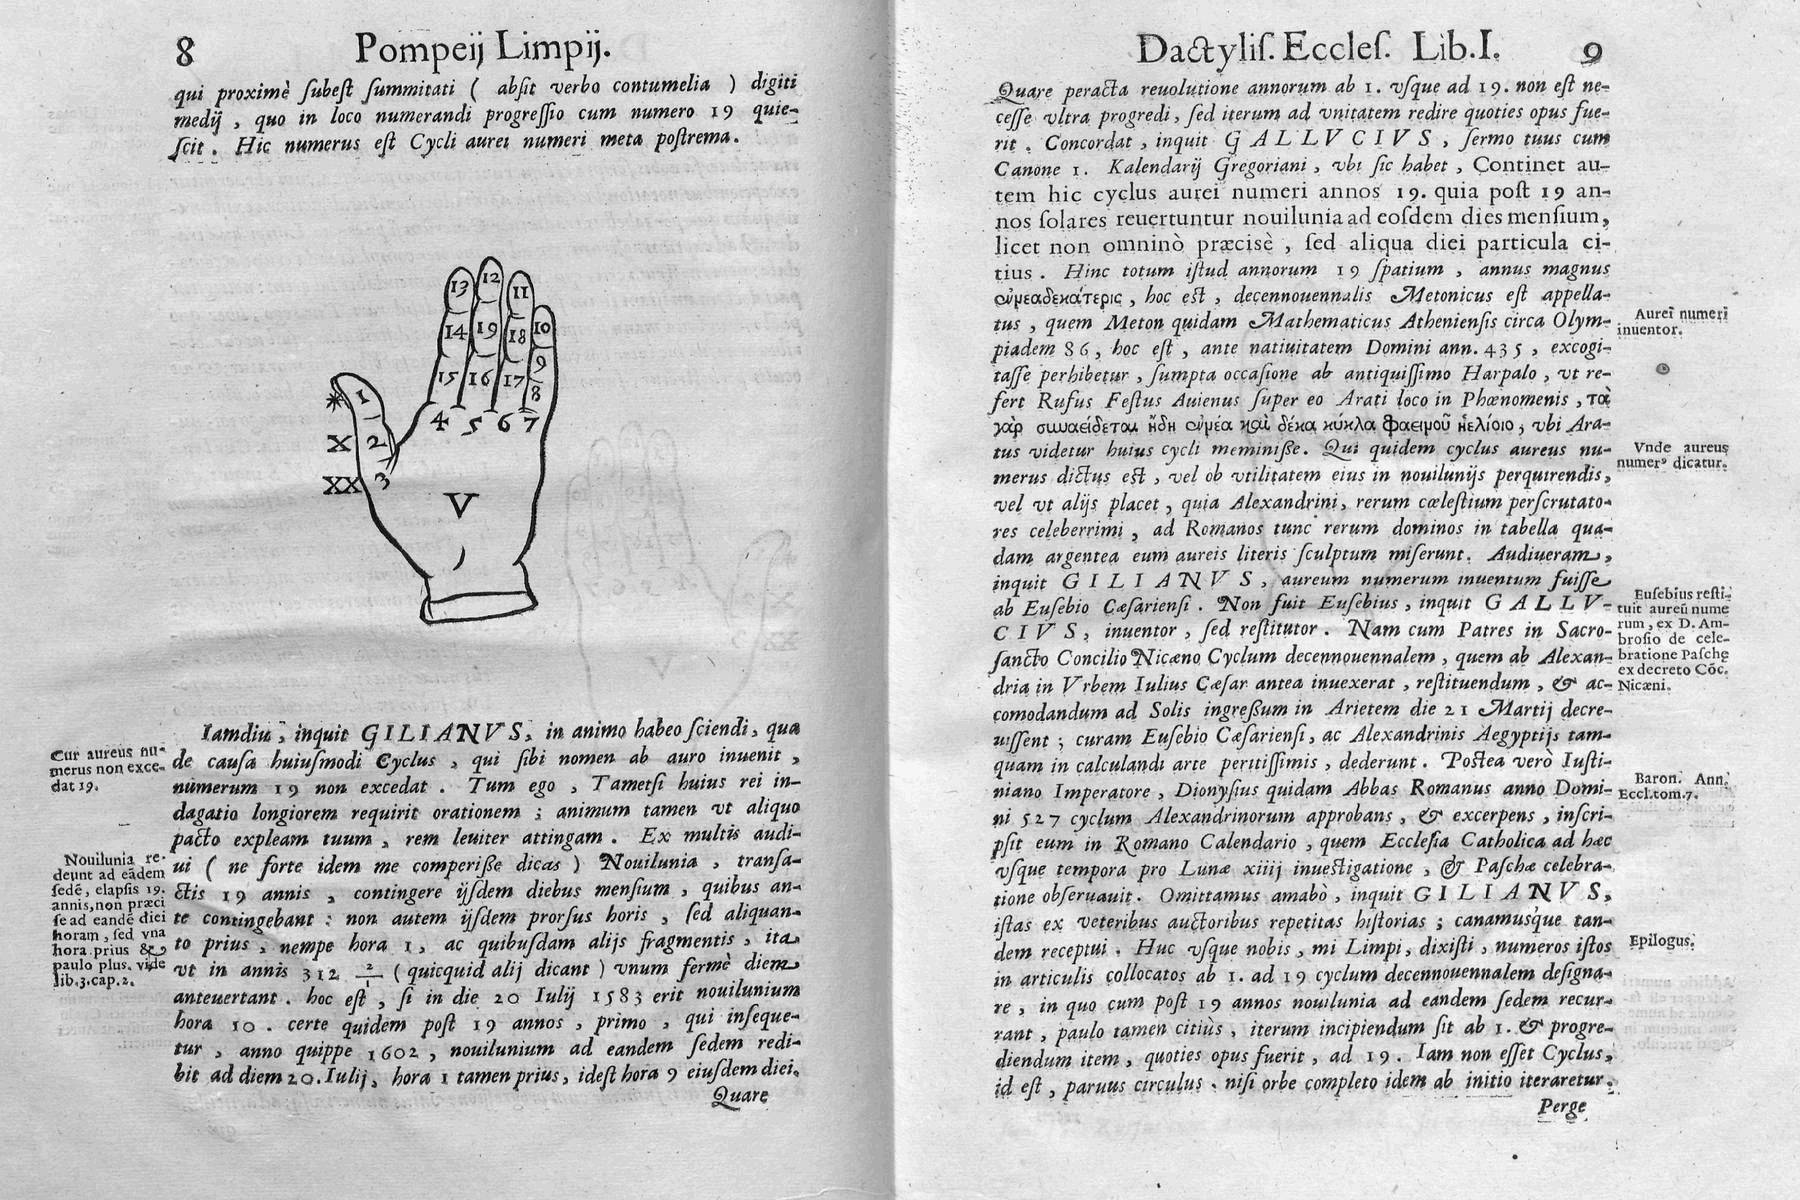 8
Pompeij Limpij.
qui proximè ſubeſt ſummitati ( abſit verbo contumelia ) digiti
medij , quo in loco numerandi progreſſio cum numero 19 quie-
ſcit . Hic numerus eſt Cycli aurei numeri meta poſtrema.
12
13 11
14 19 18 10
9
15 16 17 8
1
4 5 6 7
X 2
XX 3
V
Iamdiu , inquit GILIANVS, in animo habeo ſciendi, qua
de cauſa huiuſmodi Cyclus , qui ſibi nomen ab auro inuenit ,
numerum 19 non excedat . Tum ego , Tametſi huius rei in-
dagatio longiorem requirit orationem ; animum tamen vt aliquo
pacto expleam tuum , rem leuiter attingam . Ex multis audi-
ui ( ne forte idem me comperiſſe dicas ) Nouilunia , tranſa-
ctis 19 annis , contingere ijſdem diebus menſium , quibus an-
te contingebant : non autem ijſdem prorſus horis , ſed aliquan-
to prius , nempe hora 1, ac quibuſdam alijs fragmentis , ita
vt in annis 312 2/1 ( quicquid alij dicant ) vnum fermè diem
anteuertant . hoc eſt , ſi in die 20 Iulij 1583 erit nouilunium
hora 10 . certe quidem poſt 19 annos , primo , qui inſeque-
tur , anno quippe 1602 , nouilunium ad eandem ſedem redi-
bit ad diem 20. Iulij, hora 1 tamen prius, ideſt hora 9 eiuſdem diei.
Quare
Cur aureus nu-
merus non exce-
dat 19.
Nouilunia re-
deunt ad eādem
ſedē, elapſis 19.
annis, non præci
ſe ad eandē diei
horam, ſed vna
hora prius &
paulo plus. vide
lib.3.cap.2.
Dactyliſ. Eccleſ. Lib.I.
9
Quare peracta reuolutione annorum ab 1. vſque ad 19. non eſt ne-
ceſſe vltra progredi, ſed iterum ad vnitatem redire quoties opus fue-
rit . Concordat , inquit GALLVCIVS, ſermo tuus cum
Canone 1. Kalendarij Gregoriani , vbi ſic habet , Continet au-
tem hic cyclus aurei numeri annos 19. quia poſt 19 an-
nos ſolares reuertuntur nouilunia ad eosdem dies menſium,
licet non omninò præcisè , ſed aliqua diei particula ci-
tius . Hinc totum iſtud annorum 19 ſpatium , annus magnus
ἐννεαδεκάτερις , hoc eſt , decennouennalis Metonicus eſt appella-
tus , quem Meton quidam Mathematicus Athenienſis circa Olym-
piadem 86, hoc eſt , ante natiuitatem Domini ann. 435 , excogi-
taſſe perhibetur , ſumpta occaſione ab antiquiſſimo Harpalo , vt re-
fert Rufus Feſtus Auienus ſuper eo Arati loco in Phœnomenis , τὰ
γὰρ συναείδεται ἤδη ἐννέα καὶ δέκα κύκλα φαεινοῦ ἠελίοιο, vbi Ara-
tus videtur huius cycli meminiſſe. Qui quidem cyclus aureus nu-
merus dictus eſt , vel ob vtilitatem eius in nouilunijs perquirendis,
vel vt alijs placet , quia Alexandrini, rerum cæleſtium perſcrutato-
res celeberrimi , ad Romanos tunc rerum dominos in tabella qua-
dam argentea eum aureis literis ſculptum miſerunt. Audiueram,
inquit GILIANVS, aureum numerum inuentum fuiſſe
ab Euſebio Cæſarienſi . Non fuit Euſebius , inquit GALLV-
CIVS, inuentor , ſed reſtitutor . Nam cum Patres in Sacro-
ſancto Concilio Nicæno Cyclum decennouennalem, quem ab Alexan-
dria in Vrbem Iulius Cæſar antea inuexerat , reſtituendum , & ac-
comodandum ad Solis ingreſſum in Arietem die 21 Martij decre-
uiſſent ; curam Euſebio Cæſarienſi, ac Alexandrinis Aegyptijs tam-
quam in calculandi arte peritiſſimis , dederunt . Poſtea verò Iuſti-
niano Imperatore , Dionyſius quidam Abbas Romanus anno Domi-
ni 527 cyclum Alexandrinorum approbans , & excerpens , inſcri-
pſit eum in Romano Calendario , quem Eccleſia Catholica ad hæc
vſque tempora pro Lunæ xiiij inueſtigatione , & Paſchæ celebra-
tione obſeruauit. Omittamus amabò , inquit GILIANVS,
iſtas ex veteribus auctoribus repetitas hiſtorias ; canamuſque tan-
dem receptui . Huc vſque nobis , mi Limpi, dixiſti , numeros iſtos
in articulis collocatos ab 1. ad 19 cyclum decennouennalem deſigna-
re , in quo cum poſt 19 annos nouilunia ad eandem ſedem recur-
rant , paulo tamen citiùs , iterum incipiendum ſit ab 1. & progre-
diendum item , quoties opus fuerit , ad 19. Iam non eſſet Cyclus,
id eſt , paruus circulus . niſi orbe completo idem ab initio iteraretur.
Perge
Aurei numeri
inuentor.
Vnde aureus
numerꝰ dicatur.
Euſebius reſti-
tuit aureū nume
rum, ex D. Am-
broſio de cele-
bratione Paſche
ex decreto Cōc.
Nicæni.
Baron. Ann.
Eccl.tom.7.
Epilogus.